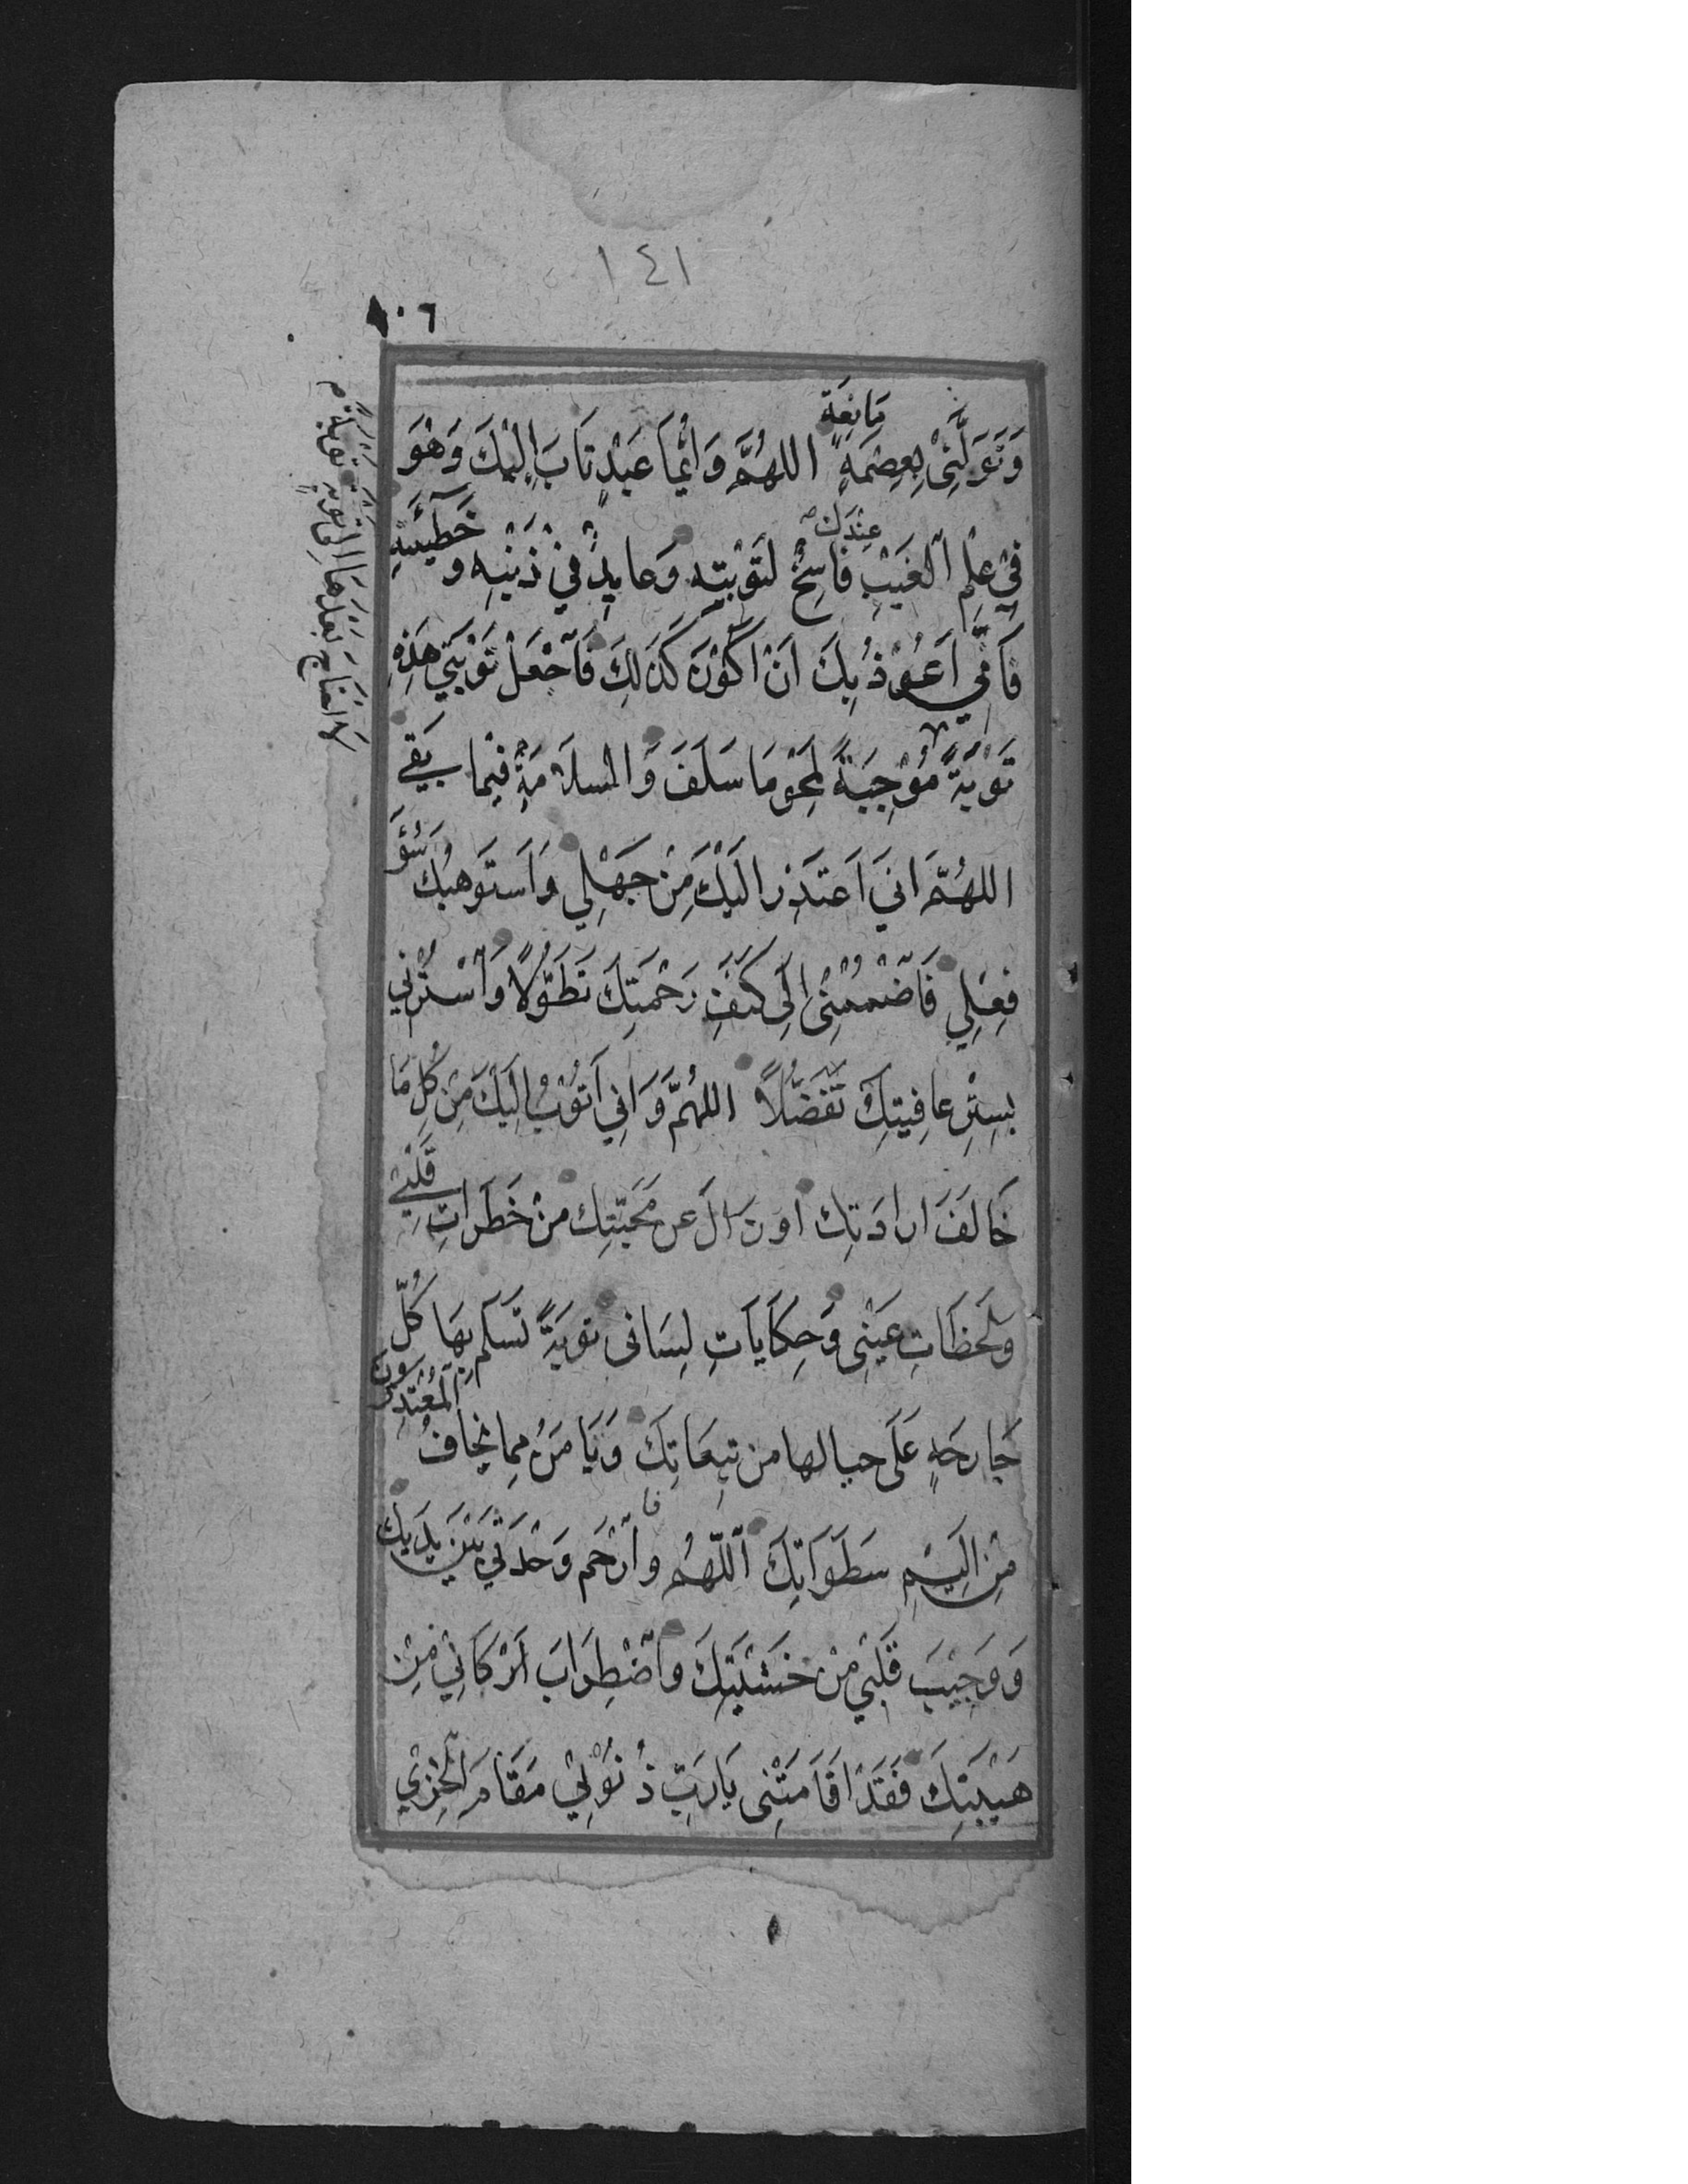 ١٤١
١٠٦
مَانِعَةٍ
وَتَوَلَّنِيْ بِعِصْمَةٍ اللهُمَّ وَاَيُّمَا عَبْدٍ تَابَ اِلَيْكَ وَهُوَ
عِنْدَكَ
فِيْ عِلْمِ الْغَيْبِ فَاسِخٌ لِتَوْبَتِهِ وَعَايِدٌ فِيْ ذَنْبِهِ وَخَطِيْئَتِهِ
فَاِنِّي اَعُوْذُ بِكَ اَنْ اَكُوْنَ كَذٰلِكَ فَاجْعَلْ تَوْبَتِي هٰذِهِ
تَوْبَةً لَا اَحْتَاجُ بَعْدَهَا اِلَى تَوْبَةٍ تَوْبَةً م
تَوْبَةً مُوْجِبَةً لِمَحْوِ مَا سَلَفَ وَالسَّلَامَةِ فِيْمَا بَقِيَ
اللهُمَّ اِنِّي اَعْتَذِرُ اِلَيْكَ مِنْ جَهْلِي وَاَسْتَوْهِبُكَ سُوْءَ
فِعْلِي فَاضْمُمْنِي اِلَى كَنَفِ رَحْمَتِكَ تَطَوُّلًا وَاسْتُرْنِي
بِسِتْرِ عَافِيَتِكَ تَفَضُّلًا اللهُمَّ وَاِنِّي اَتُوْبُ اِلَيْكَ مِنْ كُلِّ مَا
خَالَفَ اِرَادَتَكَ اَوْ زَالَ عَنْ مَحَبَّتِكَ مِنْ خَطَرَاتِ قَلْبِي
وَلَحَظَاتِ عَيْنِي وَحِكَايَاتِ لِسَانِي تَوْبَةً تَسْلَمُ بِهَا كُلُّ
جَارِحَةٍ عَلَى حِيَالِهَا مِنْ تَبِعَاتِكَ وَيَامَنُ مِمَّا يَخَافُ الْمُعْتَدُوْنَ
مِنْ اَلِيْمِ سَطَوَاتِكَ اللّٰهُمَّ وَارْحَمْ وَحْدَتِي بَيْنَ يَدَيْكَ
فا
وَوَجِيْبَ قَلْبِي مِنْ خَشْيَتِكَ وَاضْطِرَابَ اَرْكَانِي مِنْ
هَيْبَتِكَ فَقَدْ اَقَامَتْنِي يَا رَبِّ ذُنُوْبِي مَقَامَ الْخِزْيِ